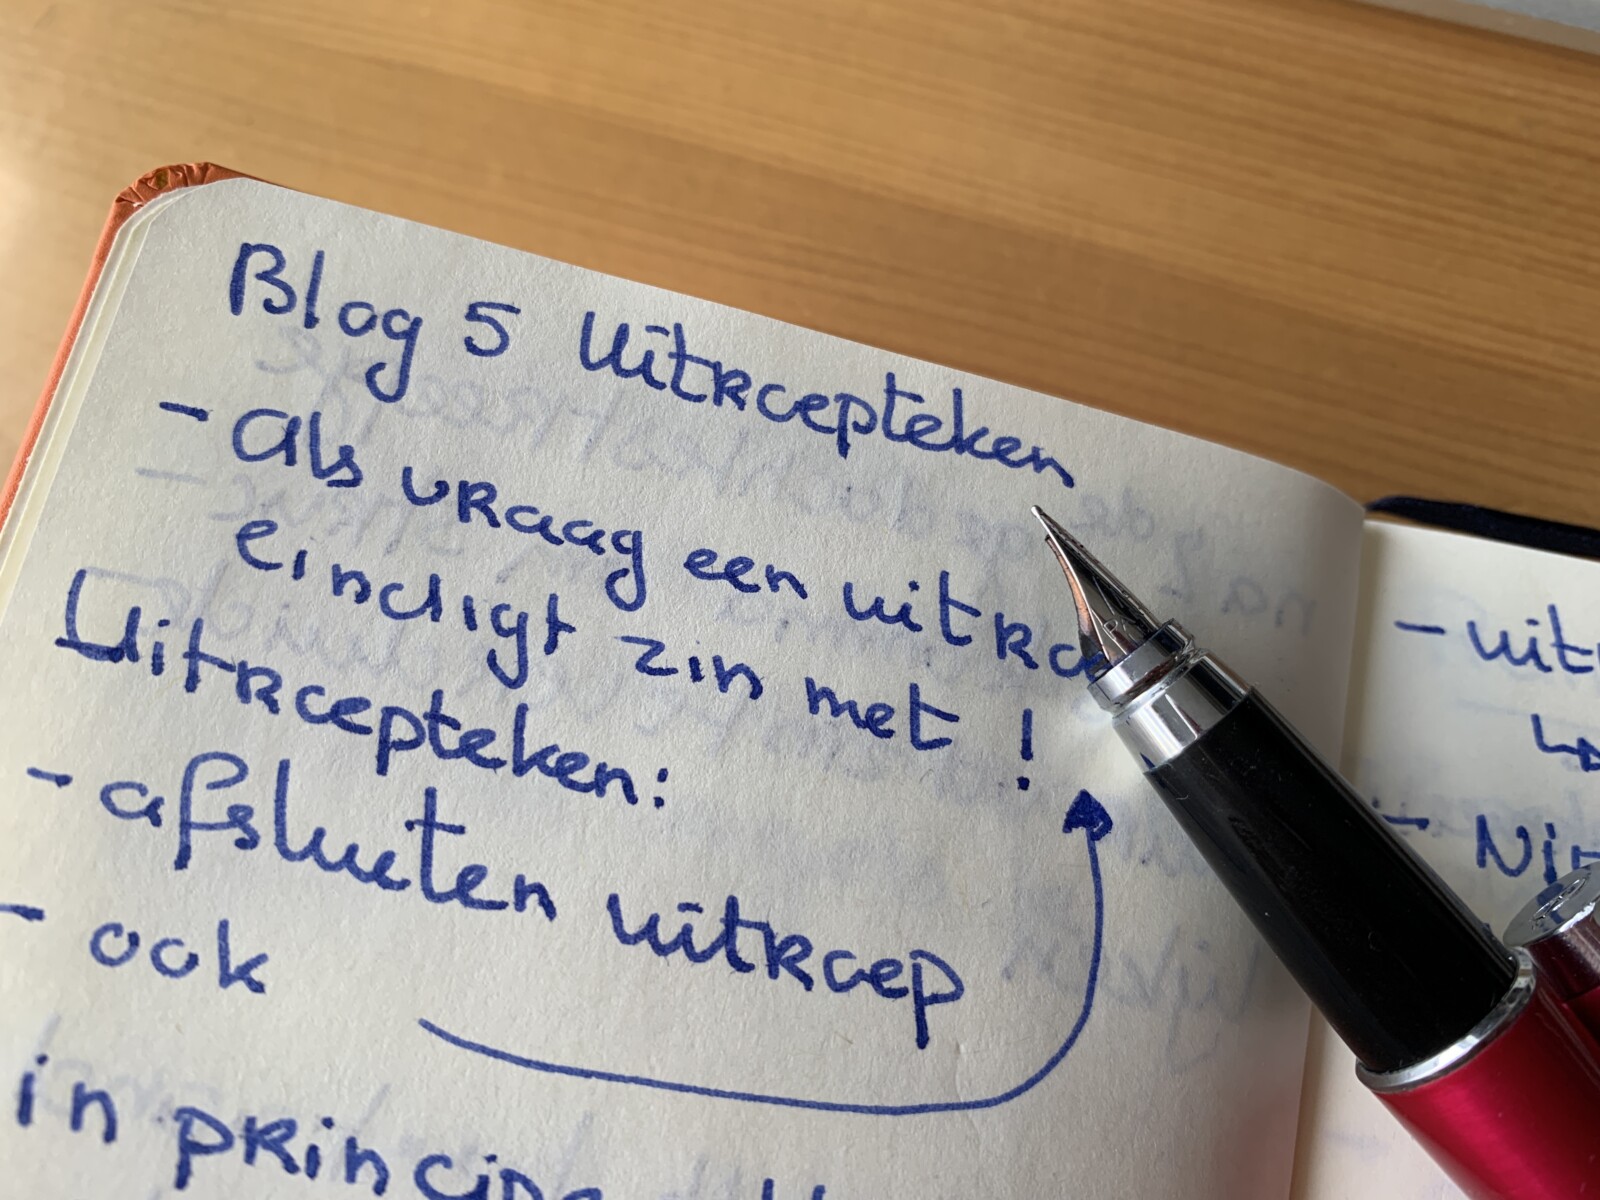 Blog 5 Uitroepteken
- Als vraag een uitroe
eindigt zin met !
Uitroepteken:
- afsluiten uitroep
- ook
in principe
- uit
- Ni